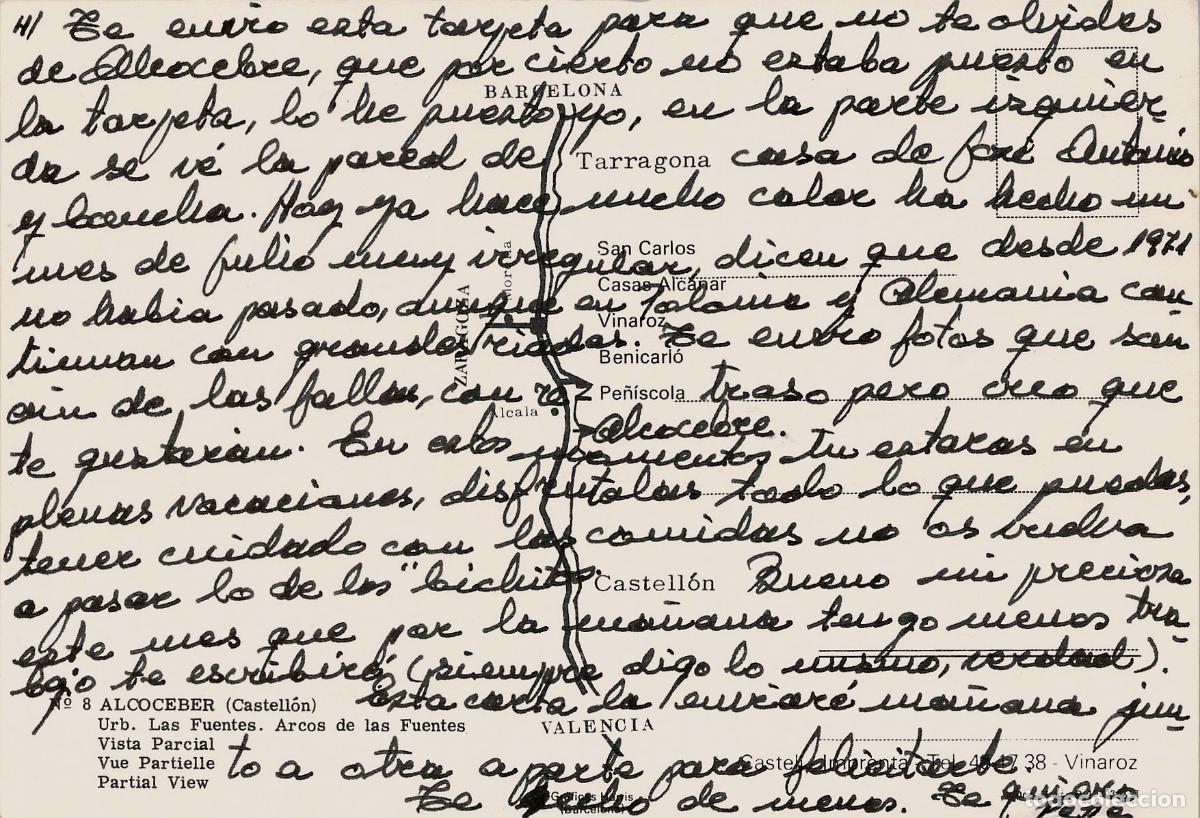 4/ Te envio esta tarjeta para que no te olvides
de Alcocebre, que por cierto no estaba puesto en
BARCELONA
la tarjeta, lo he puesto yo, en la parte izquier-
da se vé la pared de casa de José Antonio
Tarragona
y Concha. Hoy ya hace mucho calor ha hecho un
San Carlos
mes de Julio muy irregular, dicen que desde 1971
Morella
Casas Alcanar
no habia pasado, aunque en Polonia y Alemania con
ZARAGOZA
Vinaroz
tinuan con grandes riadas. Te envio fotos que son
Benicarló
aún de las fallas, con re traso pero creo que
Peñíscola
Alcala
Alcocebre.
te gustarán. En estos momentos tu estaras en
plenas vacaciones, disfrutalas todo lo que puedas,
tener cuidado con las comidas no os vuelva
a pasar lo de los "bichitos" Bueno mi preciosa
Castellón
este mes que por la mañana tengo menos tra-
bajo te escribiré, (siempre digo lo mismo, verdad).
Esta carta la enviaré mañana jun-
Nº 8 ALCOCEBER (Castellón)
Urb. Las Fuentes. Arcos de las Fuentes
VALENCIA
Vista Parcial
to a otra aparte para felicitarte.
Vue Partielle
Castell Imprenta - Tel. 45 17 38 - Vinaroz
Partial View
Te hecho de menos. Te quiero
(Barcelona)
Pepe
todocoleccion